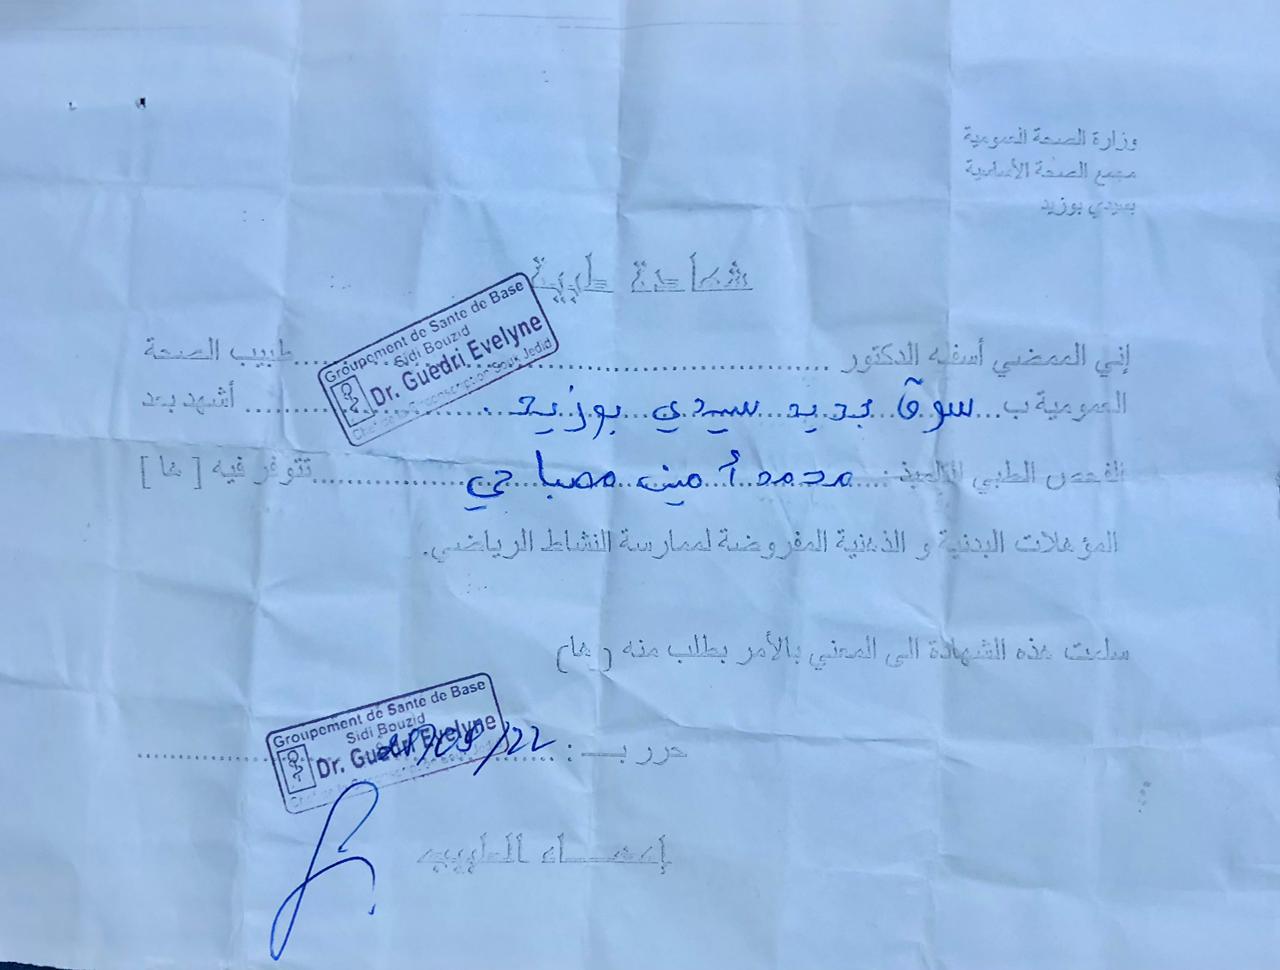 وزارة الصحة العمومية
مجمع الصحة الأساسية
بسيدي بوزيد
شهادة طبية
إني الممضي أسفله الدكتور .................................... طبيب الصحة
Groupement de Sante de Base
Sidi Bouzid
Dr. Guedri Evelyne
Chef de la Circonscription Souk Jedid
العمومية ب... سوق جديد سيدي بوزيد ............ أشهد بعد
الفحص الطبي للتلميذ: محمد أمين مصباحي ............ تتوفر فيه [ ها ]
المؤهلات البدنية و الذهنية المفروضة لممارسة النشاط الرياضي.
سلمت هذه الشهادة الى المعني بالأمر بطلب منه ( ها)
حرر بـــ : /22
Groupement de Sante de Base
Sidi Bouzid
Dr. Guedri Evelyne
إمضــــاء الطبيب